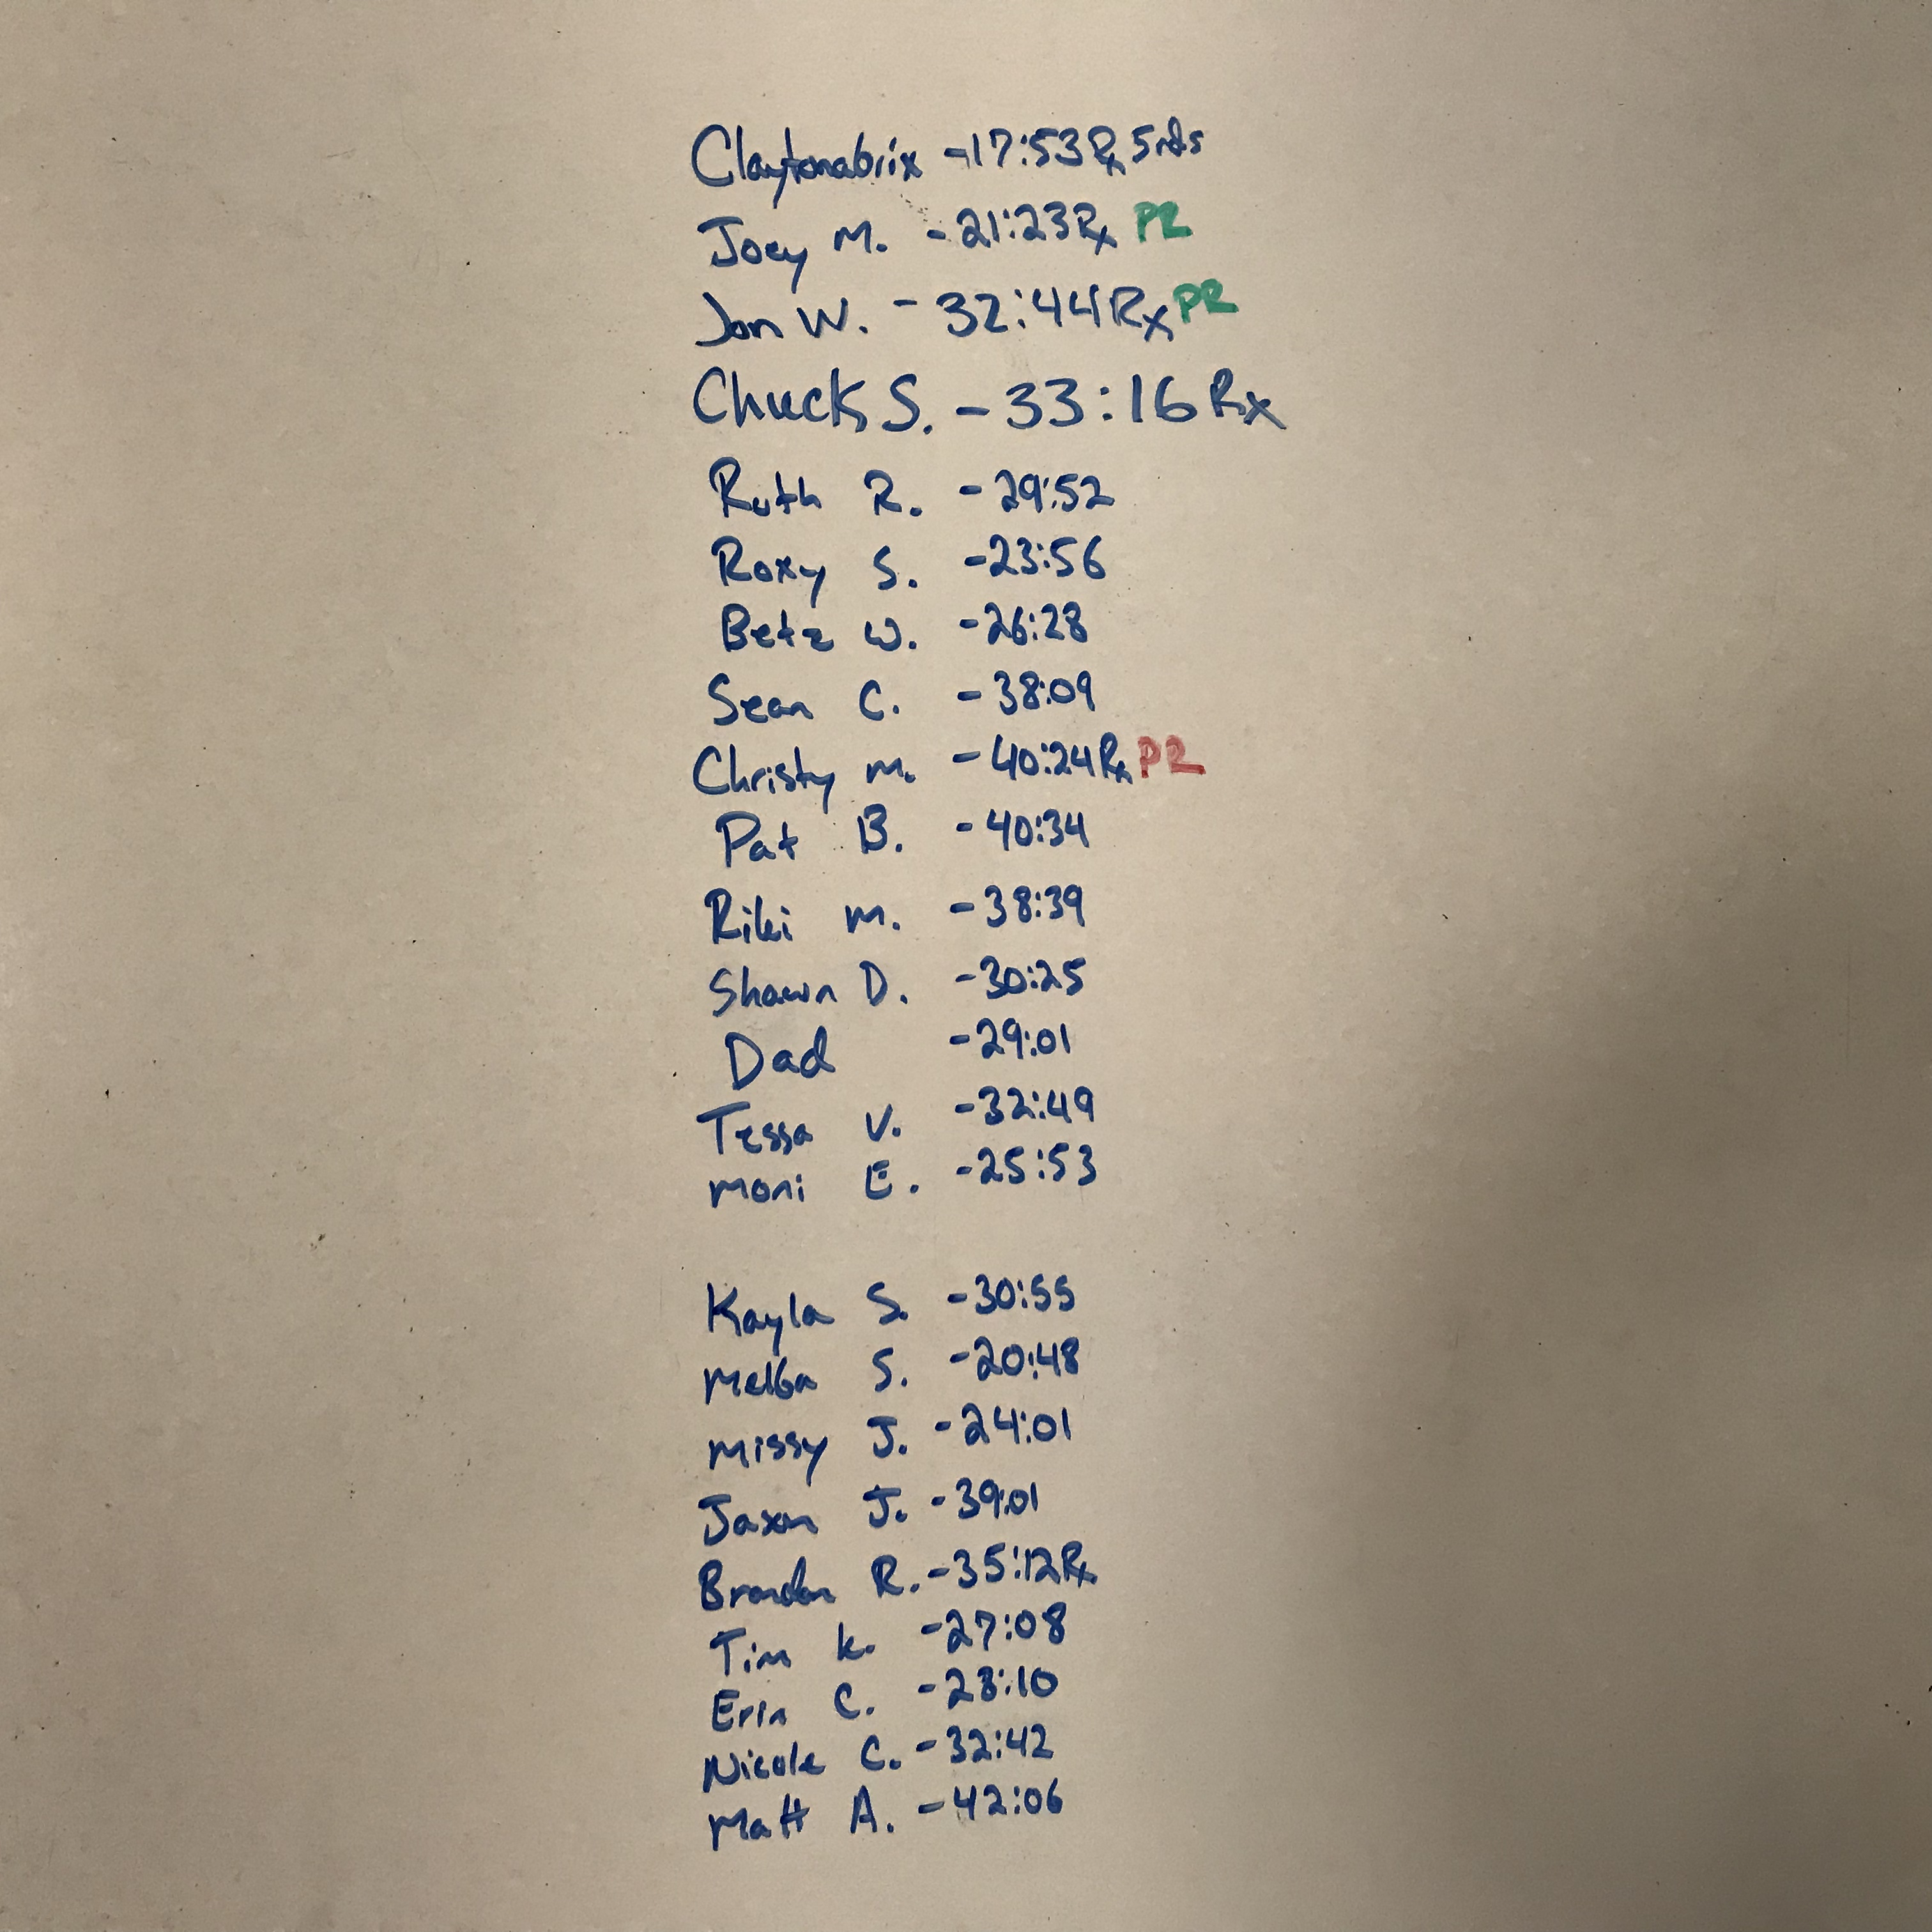 Claytonabrix -17:53Rx 5rds
Joey M. -21:23Rx PR
Jon W. - 32:44Rx PR
Chuck S. - 33:16 Rx
Ruth R. -29:52
Roxy S. -23:56
Betz W. -26:28
Sean C. -38:09
Christy M. -40:24Rx PR
Pat B. -40:34
Riki M. -38:39
Shawn D. -30:25
Dad -29:01
Tessa V. -32:49
Moni E. -25:53
Kayla S. -30:55
Melba S. -20:48
Missy J. -24:01
Jaxon J. -39:01
Brandon R. -35:12Rx
Tim K. -27:08
Erin C. -28:10
Nicole C. -32:42
Matt A. -42:06